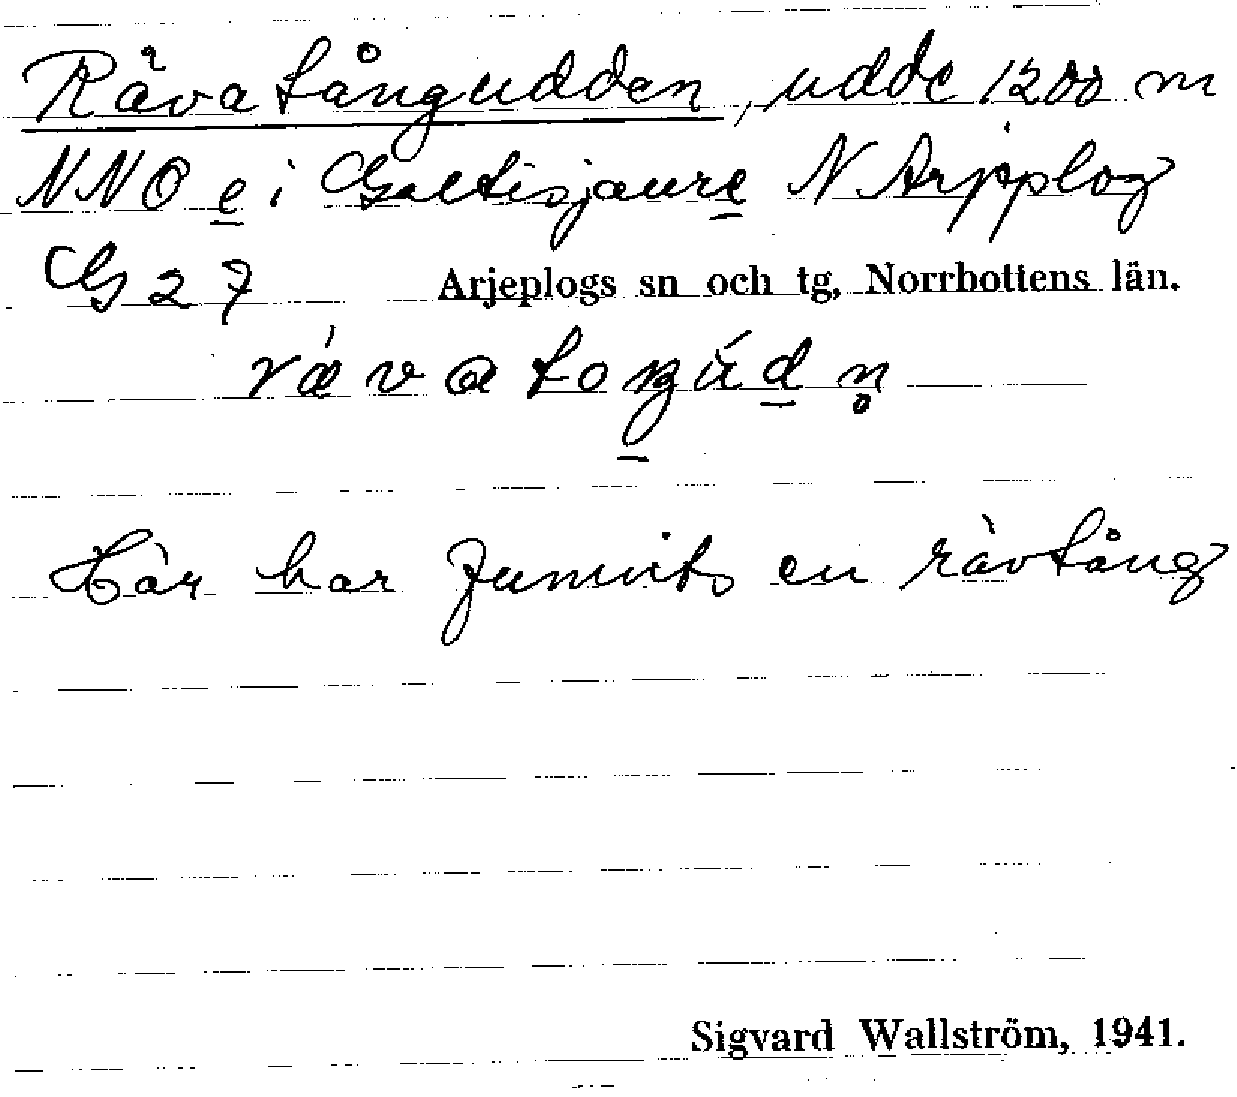 Rävatångudden, udde 1200 m
NNO e i Galtisjaure N Arjeplog
G 27 Arjeplogs sn och tg, Norrbottens län.
rǽvatoŋúdn̥
Här har funnits en rävtång
Sigvard Wallström, 1941.